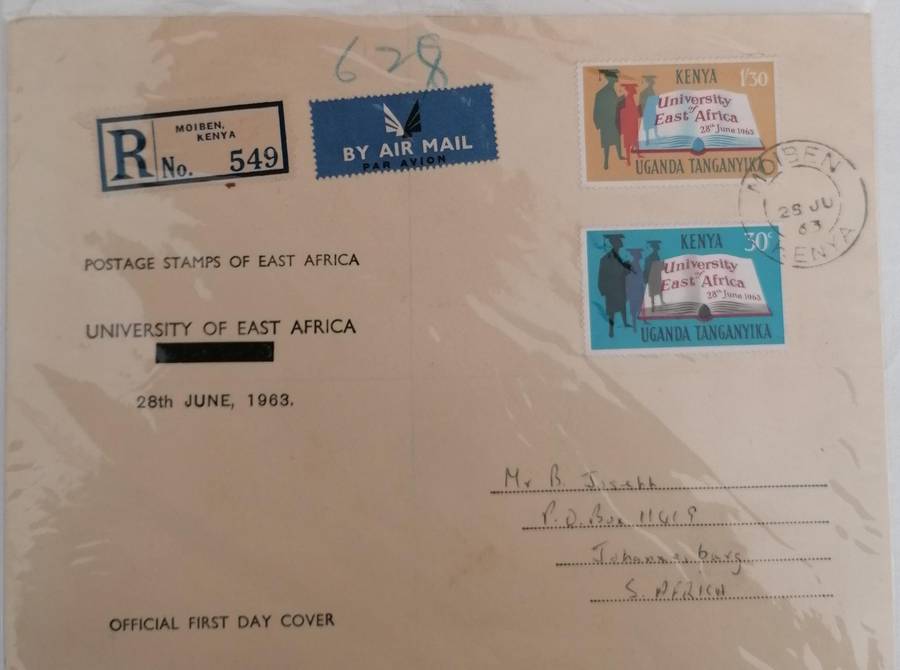 628
R
MOIBEN,
KENYA
No. 549
BY AIR MAIL
PAR AVION
KENYA 1/30
University
of
East Africa
28th June 1963
UGANDA TANGANYIKA
MOIBEN
28 JU
63
KENYA
KENYA 30c
University
of
East Africa
28th June 1963
UGANDA TANGANYIKA
POSTAGE STAMPS OF EAST AFRICA
UNIVERSITY OF EAST AFRICA
28th JUNE, 1963.
Mr B. Joseph
P.O. Box 11419
Johannesburg
S. AFRICA
OFFICIAL FIRST DAY COVER